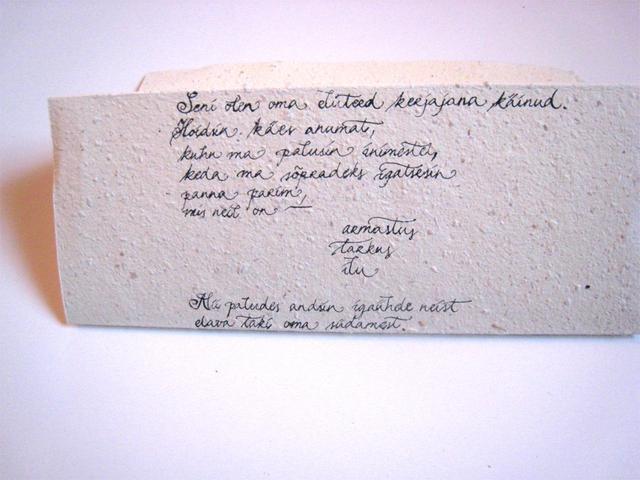 Seni olen oma eluteed kerjajana käinud.
Hoidsin käes anumat,
kuhu ma palusin inimestel,
keda ma sõpradeks igatsesin
panna parim,
mis neil on –
armastus
tarkus
ilu
Nii paludes andsin igaühele neist
elava tüki oma südamest.